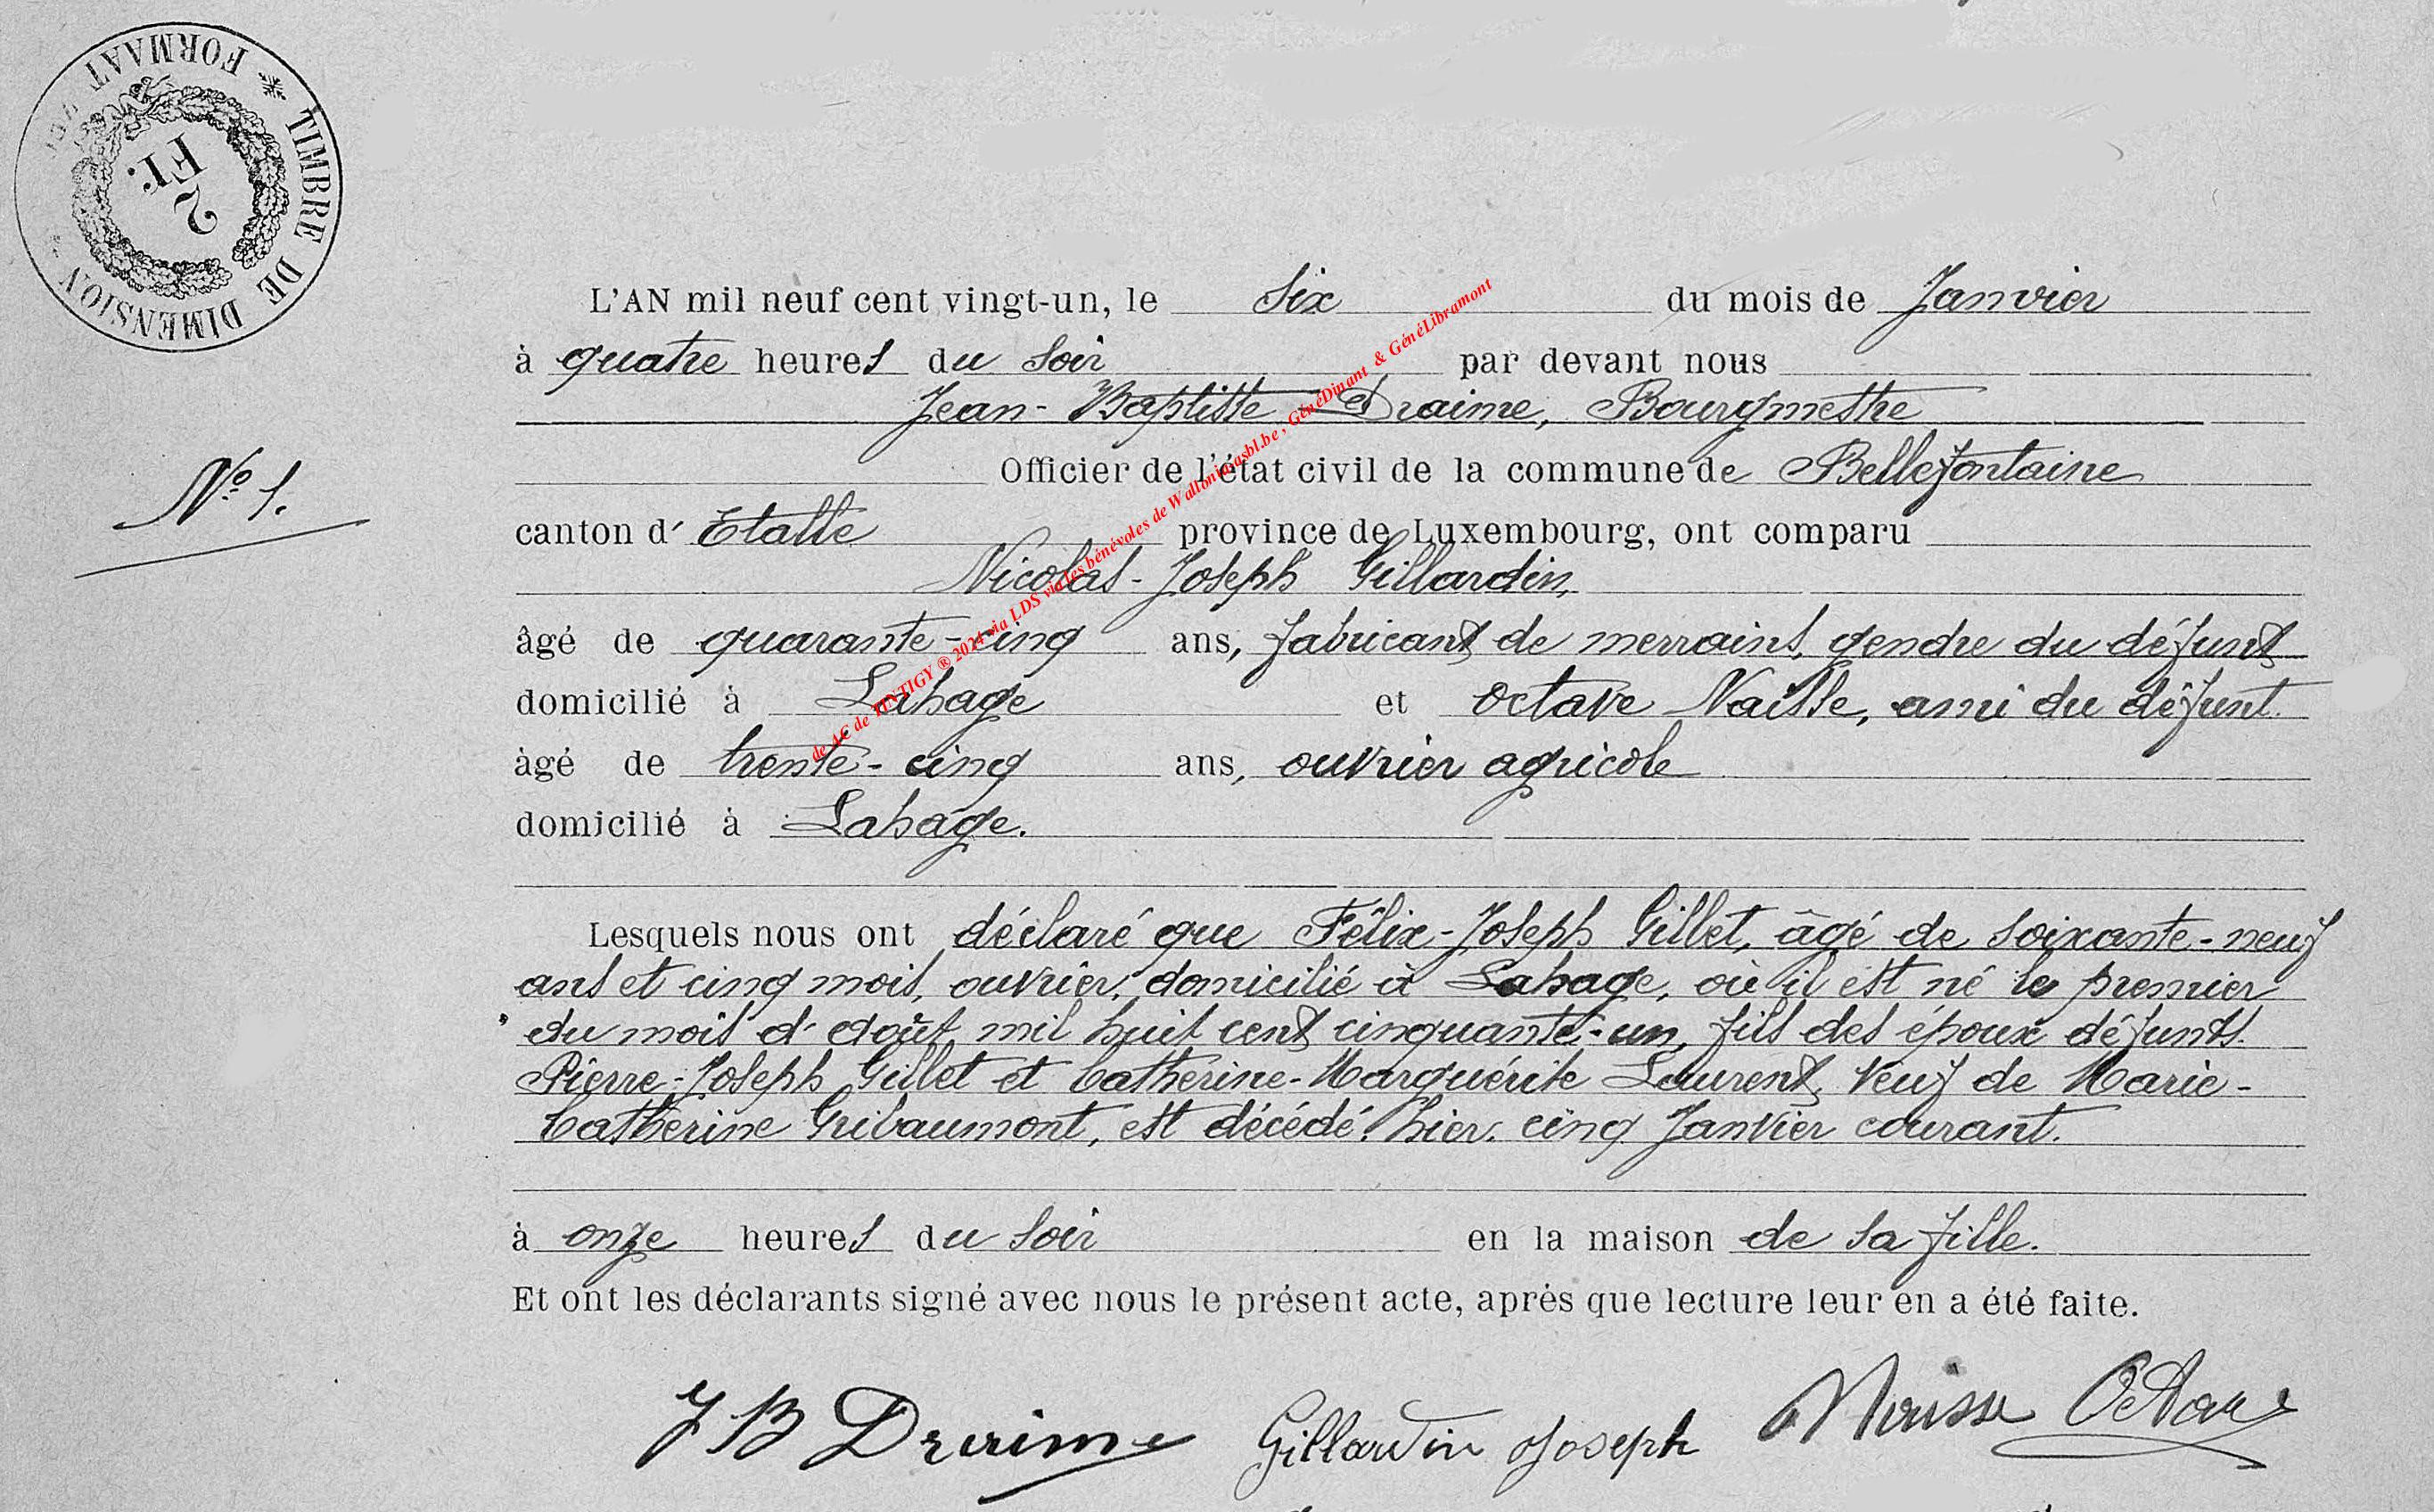 TIMBRE DE DIMENSION * FORMAAT
2
Fr.
L'AN mil neuf cent vingt-un, le Six du mois de Janvier
à quatre heures du soir par devant nous
Jean-Baptiste Draime, Bourgmestre
N° 1.
Officier de l'état civil de la commune de Bellefontaine
canton d' Etalle province de Luxembourg, ont comparu
Nicolas-Joseph Gillardin,
âgé de quarante-cinq ans, fabricant de merrains, gendre du défunt
domicilié à Lahage et Octave Naisse, ami du défunt.
àgé de trente-cinq ans, ouvrier agricole
domicilié à Lahage.
Lesquels nous ont déclaré que Félix-Joseph Gillet, âgé de soixante-neuf
ans et cinq mois, ouvrier, domicilié à Lahage, où il est né le premier
du mois d'août mil huit cent cinquante-un, fils des époux défunts
Pierre-Joseph Gillet et Catherine-Marguérite Laurent, veuf de Marie-
Catherine Gribaumont, est décédé hier cinq Janvier courant.
à onze heures du soir en la maison de sa fille.
Et ont les déclarants signé avec nous le présent acte, après que lecture leur en a été faite.
J B Draime Gillardin Joseph Naisse Octave
de AC de TINTIGY ® 2024 via LDS via les bénévoles de Walloniaasbl.be , GénéDinant & GénéLibramont